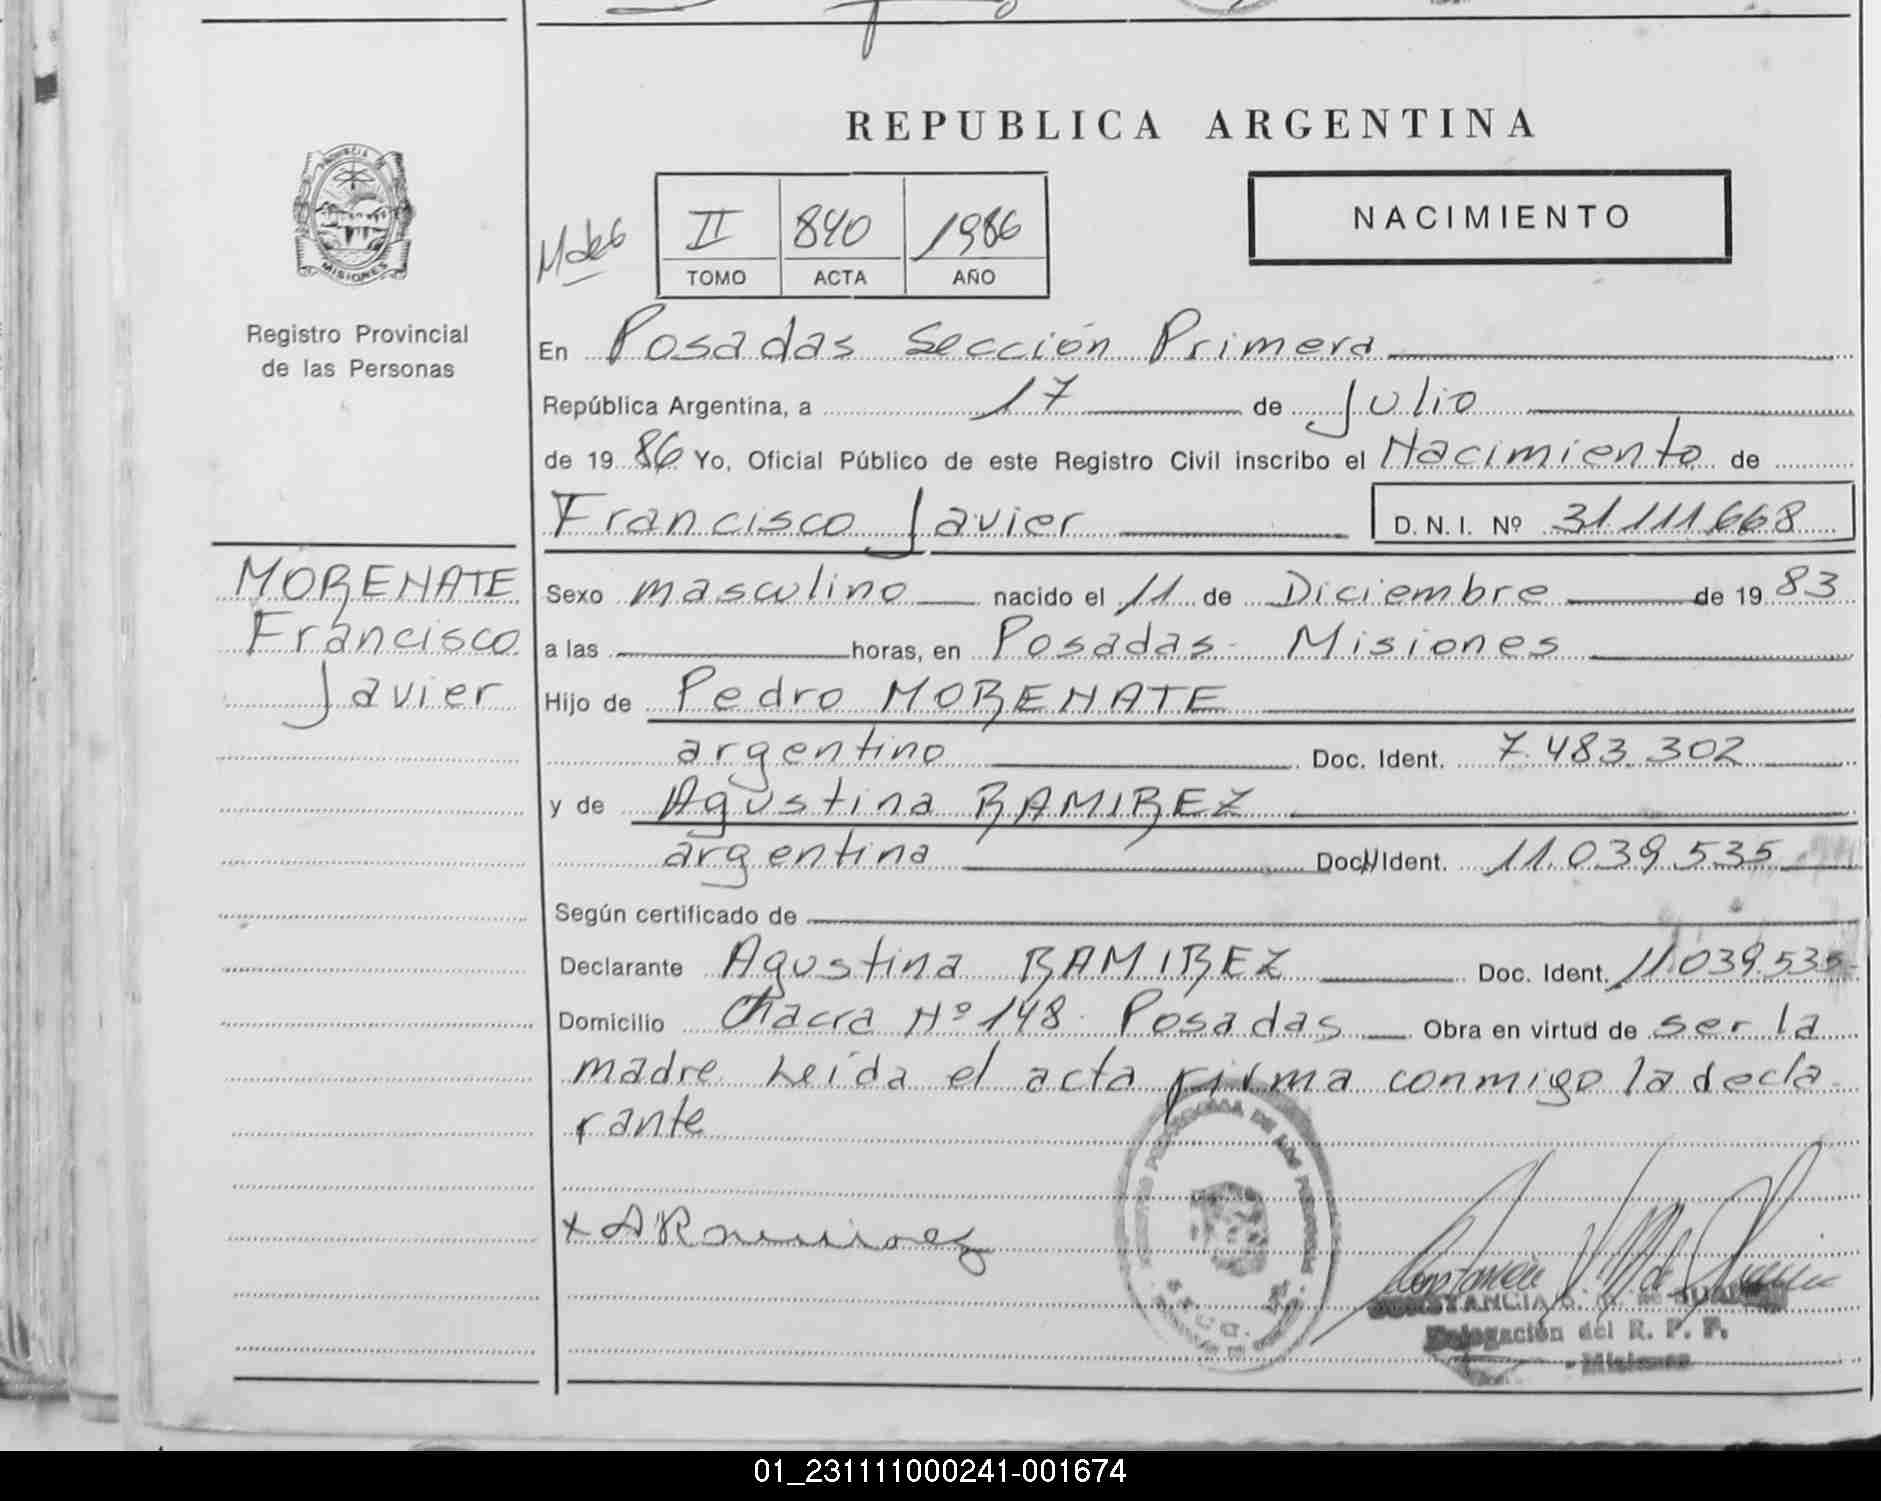 REPUBLICA ARGENTINA
PROVINCIA DE
MISIONES
Registro Provincial
de las Personas
II 840 1986
TOMO ACTA AÑO
NACIMIENTO
En Posadas Sección Primera
República Argentina, a 17 de Julio
de 1986 Yo, Oficial Público de este Registro Civil inscribo el Nacimiento de
Francisco Javier D.N.I. Nº 31.111.668
MORENATE
Francisco
Javier
Sexo masculino nacido el 11 de Diciembre de 1983
a las horas, en Posadas - Misiones
Hijo de Pedro MORENATE
argentino Doc. Ident. 7.483.302
y de Agustina RAMIREZ
argentina Doc. Ident. 11.039.535
Según certificado de
Declarante Agustina RAMIREZ Doc. Ident. 11.039.535-
Domicilio Chacra Nº 148. Posadas Obra en virtud de ser la
madre. Leída el acta firma conmigo la decla-
rante
x A Ramirez
Delegación del R. P. P.
Misiones
01_231111000241-001674